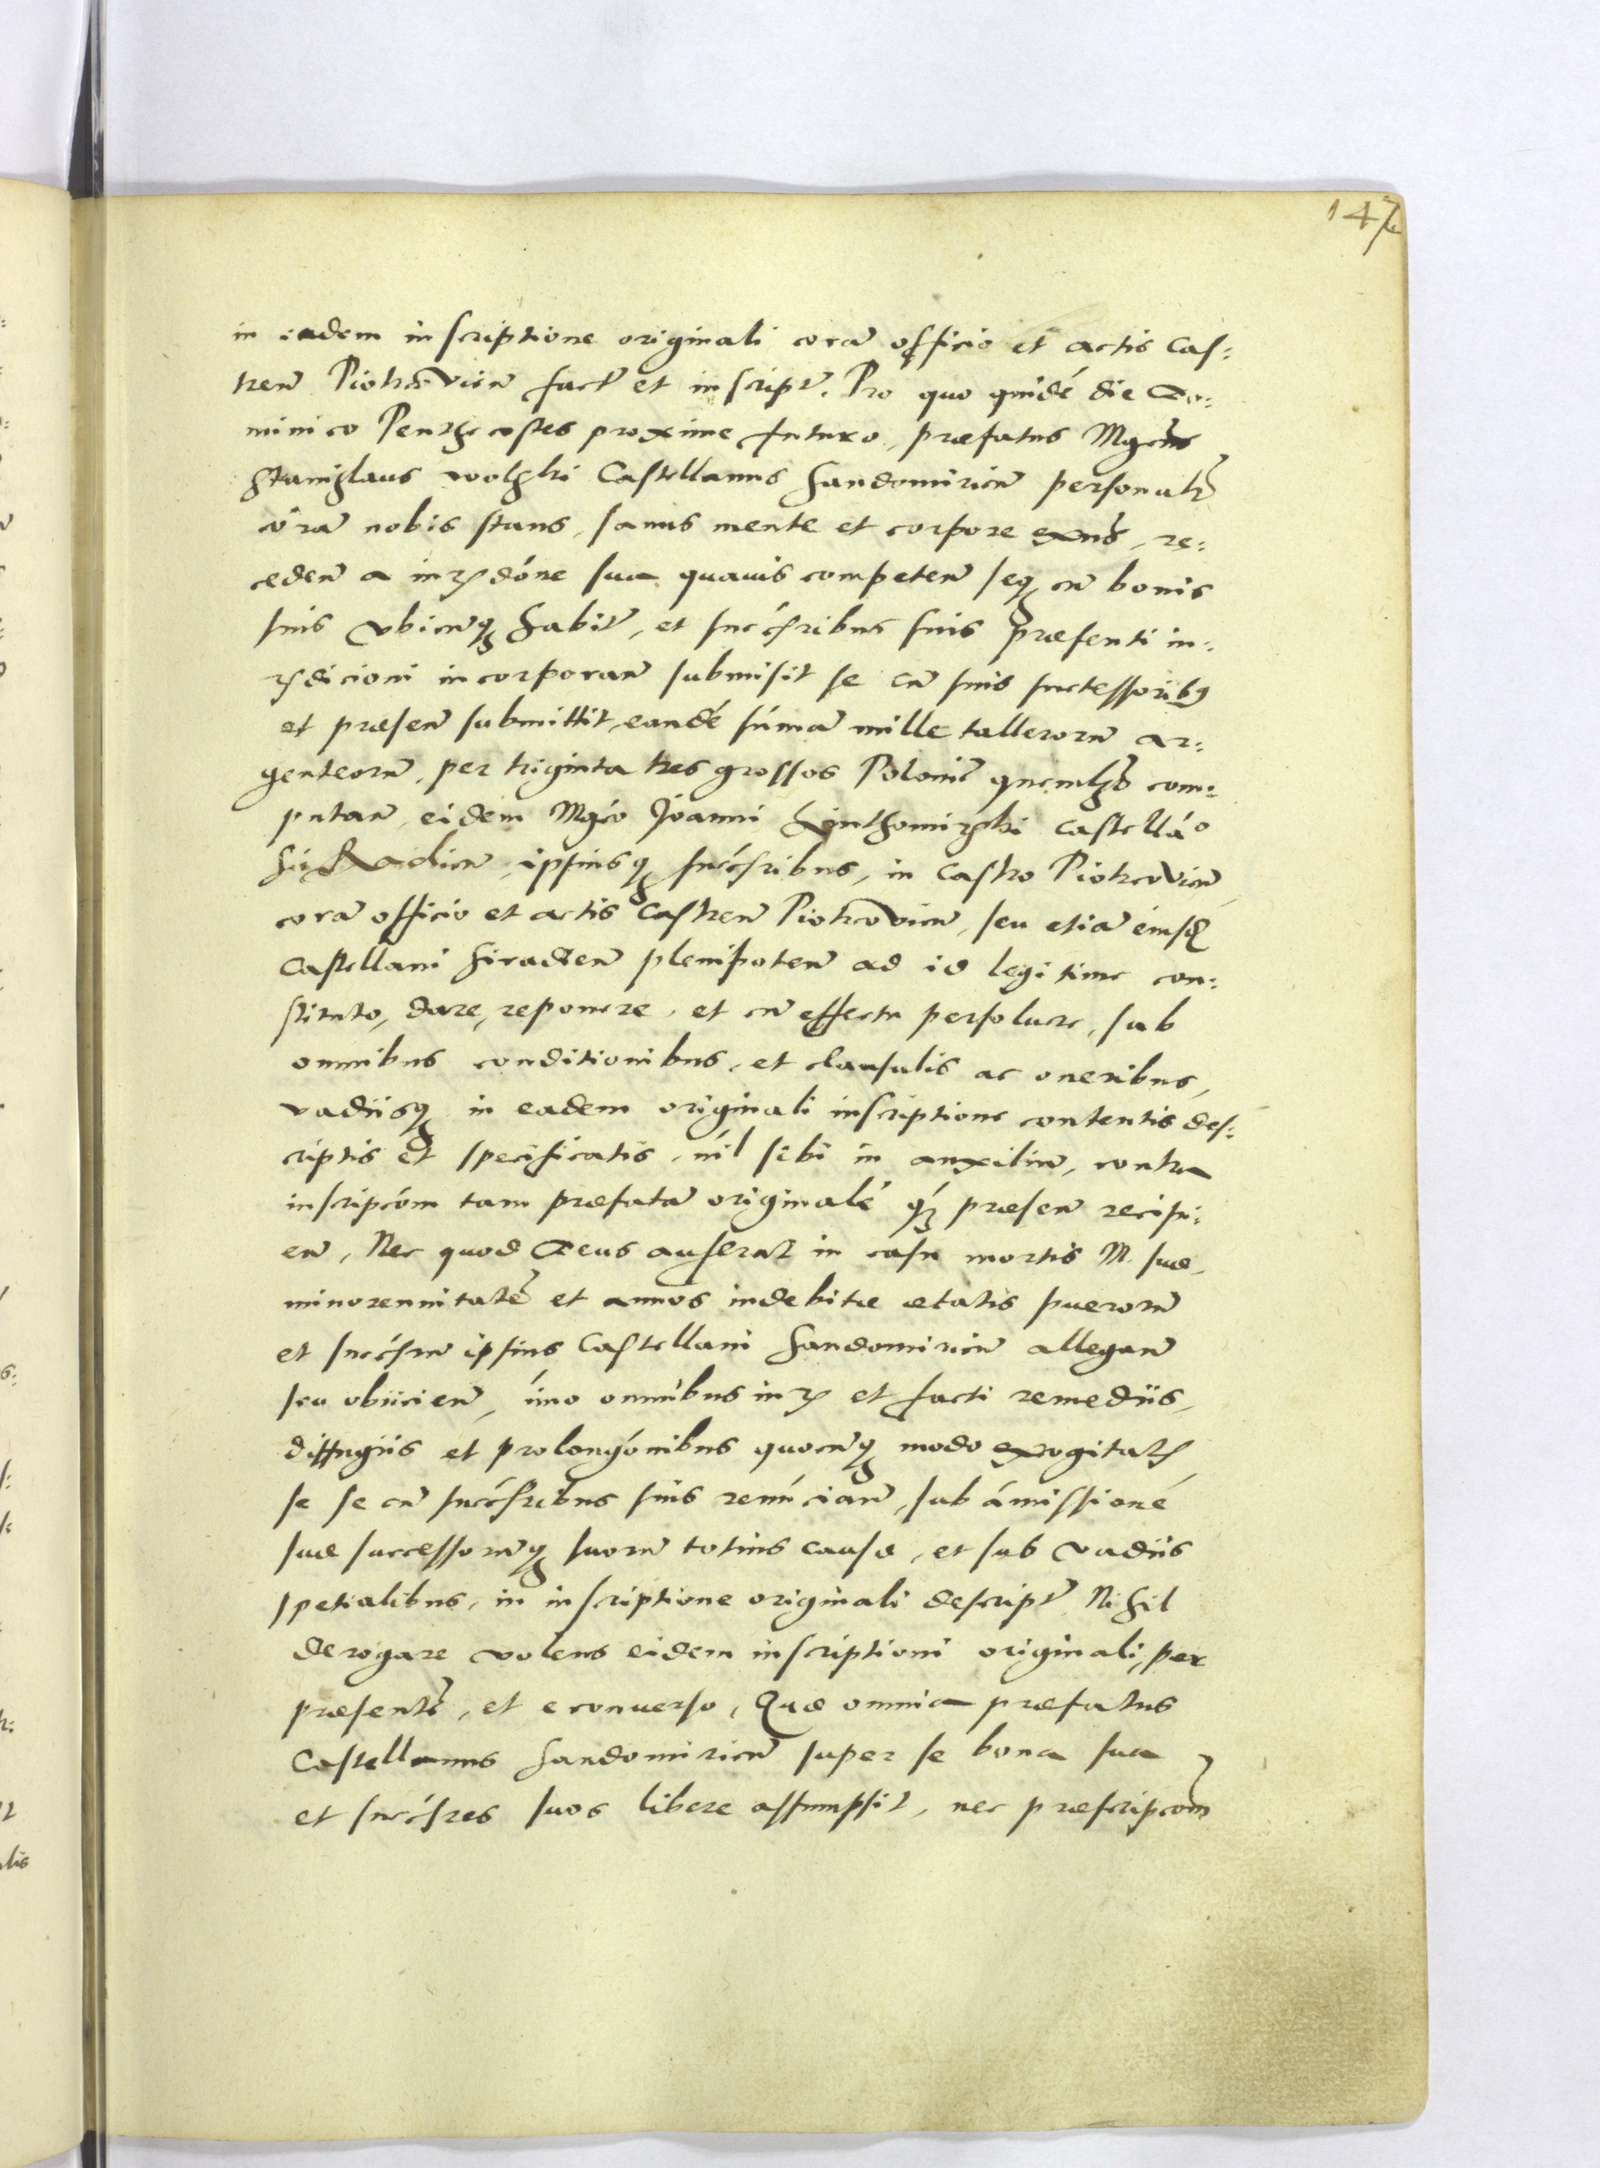 147
in eadem inscriptione originali corã officio et actis Cas:
tren̄ Piotrcovien̄ fact̃ et inscript̃. Pro quo quidé die Do:
minico Penthecostes proxime futuro, præfatus Mgcūs
Stanislaus wolski Castellanus Sandomirien̄ personalr̃
corã nobis stans, sanus mente et corpore exn̄s, re:
ceden̄ a iurisdóne sua quauis competen̄ seq₃ cũ bonis
suis vbicunq₃ habit̃, et succésribus suis præsenti iu:
risdicioni incorporan̄ submisit se cũ suis successorib₉
et præsen̄ submittit, eandé súmã mille tallerorũ ar:
genteorũ, per triginta tres grossos Polonic̃ quemlib̃ com:
putan̄, eidem Mgćo Joanni Luthomirski Castelláo
Siradien̄, ipsiusq₃ succésribus, in Castro Piotrcovien̄,
corã officio et actis Castren̄ Piotrcovien̄, seu etiã eiusd̃
Castellani Siradien̄ plenipoten̄ ad id legitime con:
stituto, dare, reponere, et cũ effectu persoluere, sub
omnibus conditionibus, et clausulis ac oneribus,
vadiisq₃ in eadem originali inscriptione contentis des:
criptis et specificatis, níl sibi in auxiliũ, contra
inscripcóm tam præfatã originalé q₃́ præsen̄ recipi:
en̄, Nec quod Deus auferat in casu mortis M. suæ,
minorennitatẽ et annos indebitæ ætatis puerorũ
et succésrũ ipsius Castellani Sandomirien̄ allegan̄
seu obiicien̄, ímo omnibus iuris et facti remediis,
diffugiis et prolongónibus quocunq₃ modo excogitatis
se se cũ succésribus suis renúcian̄, sub ámissioné
suæ successorumq₃ suorũ totius causæ, et sub vadiis
spetialibus, in inscriptione originali descript̃ Nihil
derogare volens eidem inscriptioni originali, per
præsentẽ, et e conuerso, Quæ omnia præfatus
Castellanus Sandomirien̄ super se bona sua
et succésres suos libere assumpsit, nec præscripcom̃